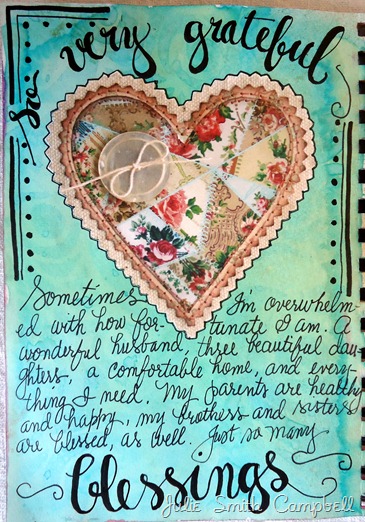 So very grateful
Sometimes I'm overwhelm-
ed with how for- tunate I am. A
wonderful husband, three beautiful dau-
ghters, a comfortable home, and every-
thing I need. My parents are healthy
and happy, my brothers and sisters
are blessed, as well. Just so many
blessings
Julie Smith Campbell